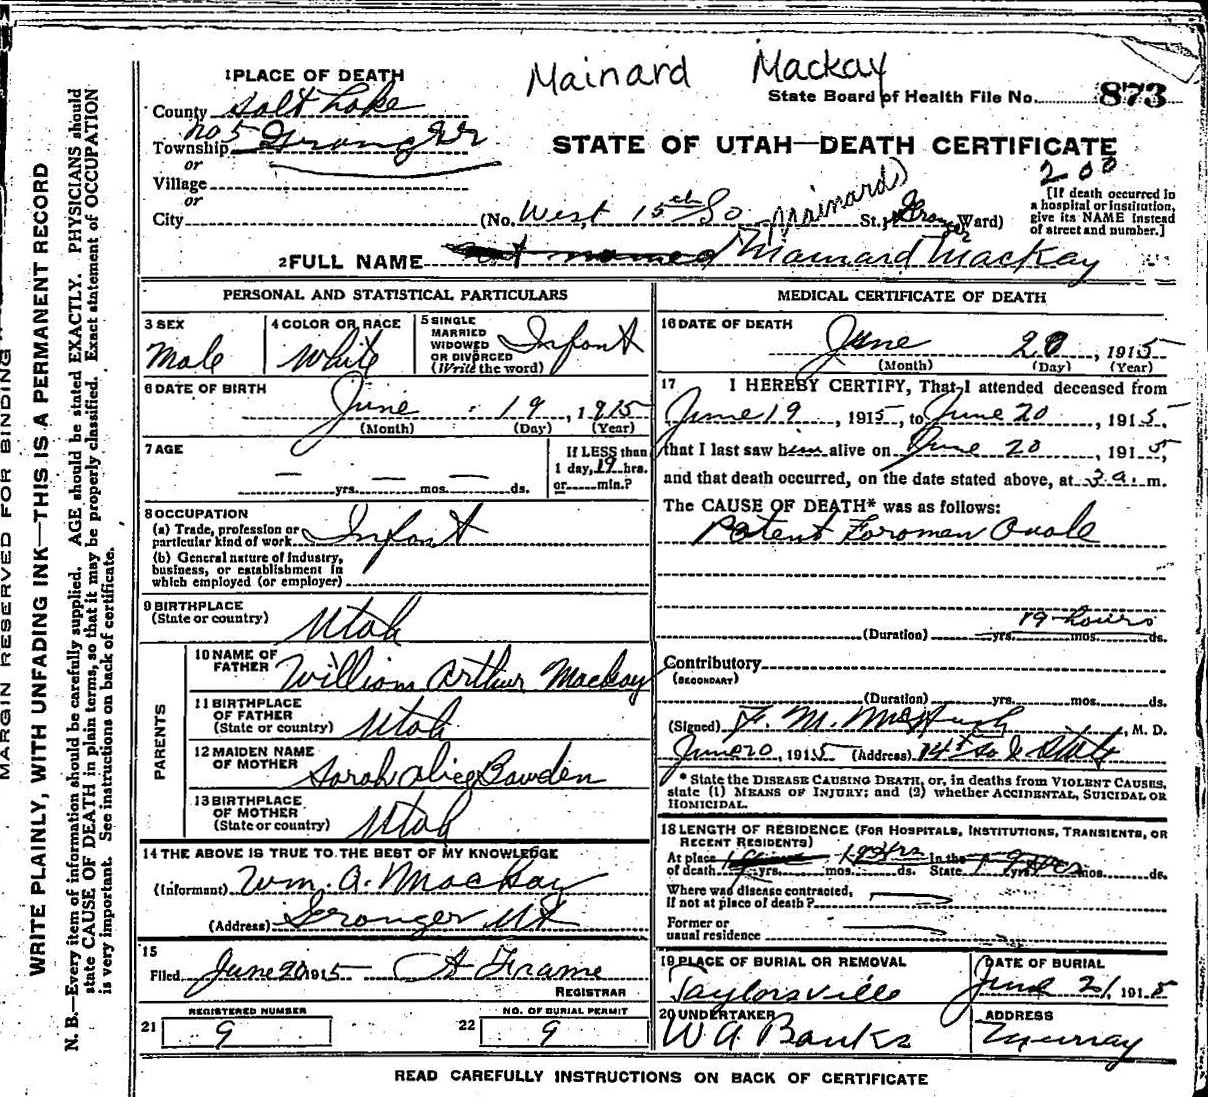 Mainard Mackay
1 PLACE OF DEATH
State Board of Health File No. 873
County Salt Lake
no 5
Township Granger
or
Village
or
City
STATE OF UTAH—DEATH CERTIFICATE
200
[If death occurred in
a hospital or institution,
give its NAME instead
of street and number.]
(No. West 15th So St.; Granger Ward)
Mainard
2 FULL NAME not named Mainard Mackay
PERSONAL AND STATISTICAL PARTICULARS
3 SEX
Male
4 COLOR OR RACE
White
5 SINGLE
MARRIED
WIDOWED
OR DIVORCED
(Write the word)
Infant
6 DATE OF BIRTH
June 19, 1915
(Month) (Day) (Year)
7 AGE
— — —
yrs. mos. ds.
If LESS than
1 day, 19 hrs.
or min.?
8 OCCUPATION
(a) Trade, profession or
particular kind of work Infant
(b) General nature of industry,
business, or establishment in
which employed (or employer)
9 BIRTHPLACE
(State or country) Utah
PARENTS
10 NAME OF
FATHER William Arthur Mackay
11 BIRTHPLACE
OF FATHER
(State or country) Utah
12 MAIDEN NAME
OF MOTHER Sarah Alice Bawden
13 BIRTHPLACE
OF MOTHER
(State or country) Utah
14 THE ABOVE IS TRUE TO THE BEST OF MY KNOWLEDGE
(Informant) Wm. A. Mackay
(Address) Granger Ut
15
Filed June 20 1915 Frame
REGISTRAR
REGISTERED NUMBER
21 9
NO. OF BURIAL PERMIT
22 9
MEDICAL CERTIFICATE OF DEATH
16 DATE OF DEATH
June 20, 1915
(Month) (Day) (Year)
17 I HEREBY CERTIFY, That I attended deceased from
June 19, 1915, to June 20, 1915,
that I last saw him alive on June 20, 1915,
and that death occurred, on the date stated above, at 3 a. m.
The CAUSE OF DEATH* was as follows:
Patent Foramen Ovale
19 hours
(Duration) yrs. mos. ds.
Contributory
(SECONDARY)
(Duration) yrs. mos. ds.
(Signed) F. M. McHugh, M. D.
June 20, 1915 (Address) 14th So & State
* State the DISEASE CAUSING DEATH, or, in deaths from VIOLENT CAUSES,
state (1) MEANS OF INJURY; and (2) whether ACCIDENTAL, SUICIDAL OR
HOMICIDAL.
18 LENGTH OF RESIDENCE (FOR HOSPITALS, INSTITUTIONS, TRANSIENTS, OR
RECENT RESIDENTS)
At place In the
of death yrs. mos. ds. State yrs. mos. ds.
Where was disease contracted,
if not at place of death?
Former or
usual residence
19 PLACE OF BURIAL OR REMOVAL
Taylorsville
DATE OF BURIAL
June 21, 1915
20 UNDERTAKER
W A Banks
ADDRESS
Murray
READ CAREFULLY INSTRUCTIONS ON BACK OF CERTIFICATE
MARGIN RESERVED FOR BINDING
WRITE PLAINLY, WITH UNFADING INK—THIS IS A PERMANENT RECORD
N. B.—Every item of information should be carefully supplied. AGE should be stated EXACTLY. PHYSICIANS should
state CAUSE OF DEATH in plain terms, so that it may be properly classified. Exact statement of OCCUPATION
is very important. See instructions on back of certificate.